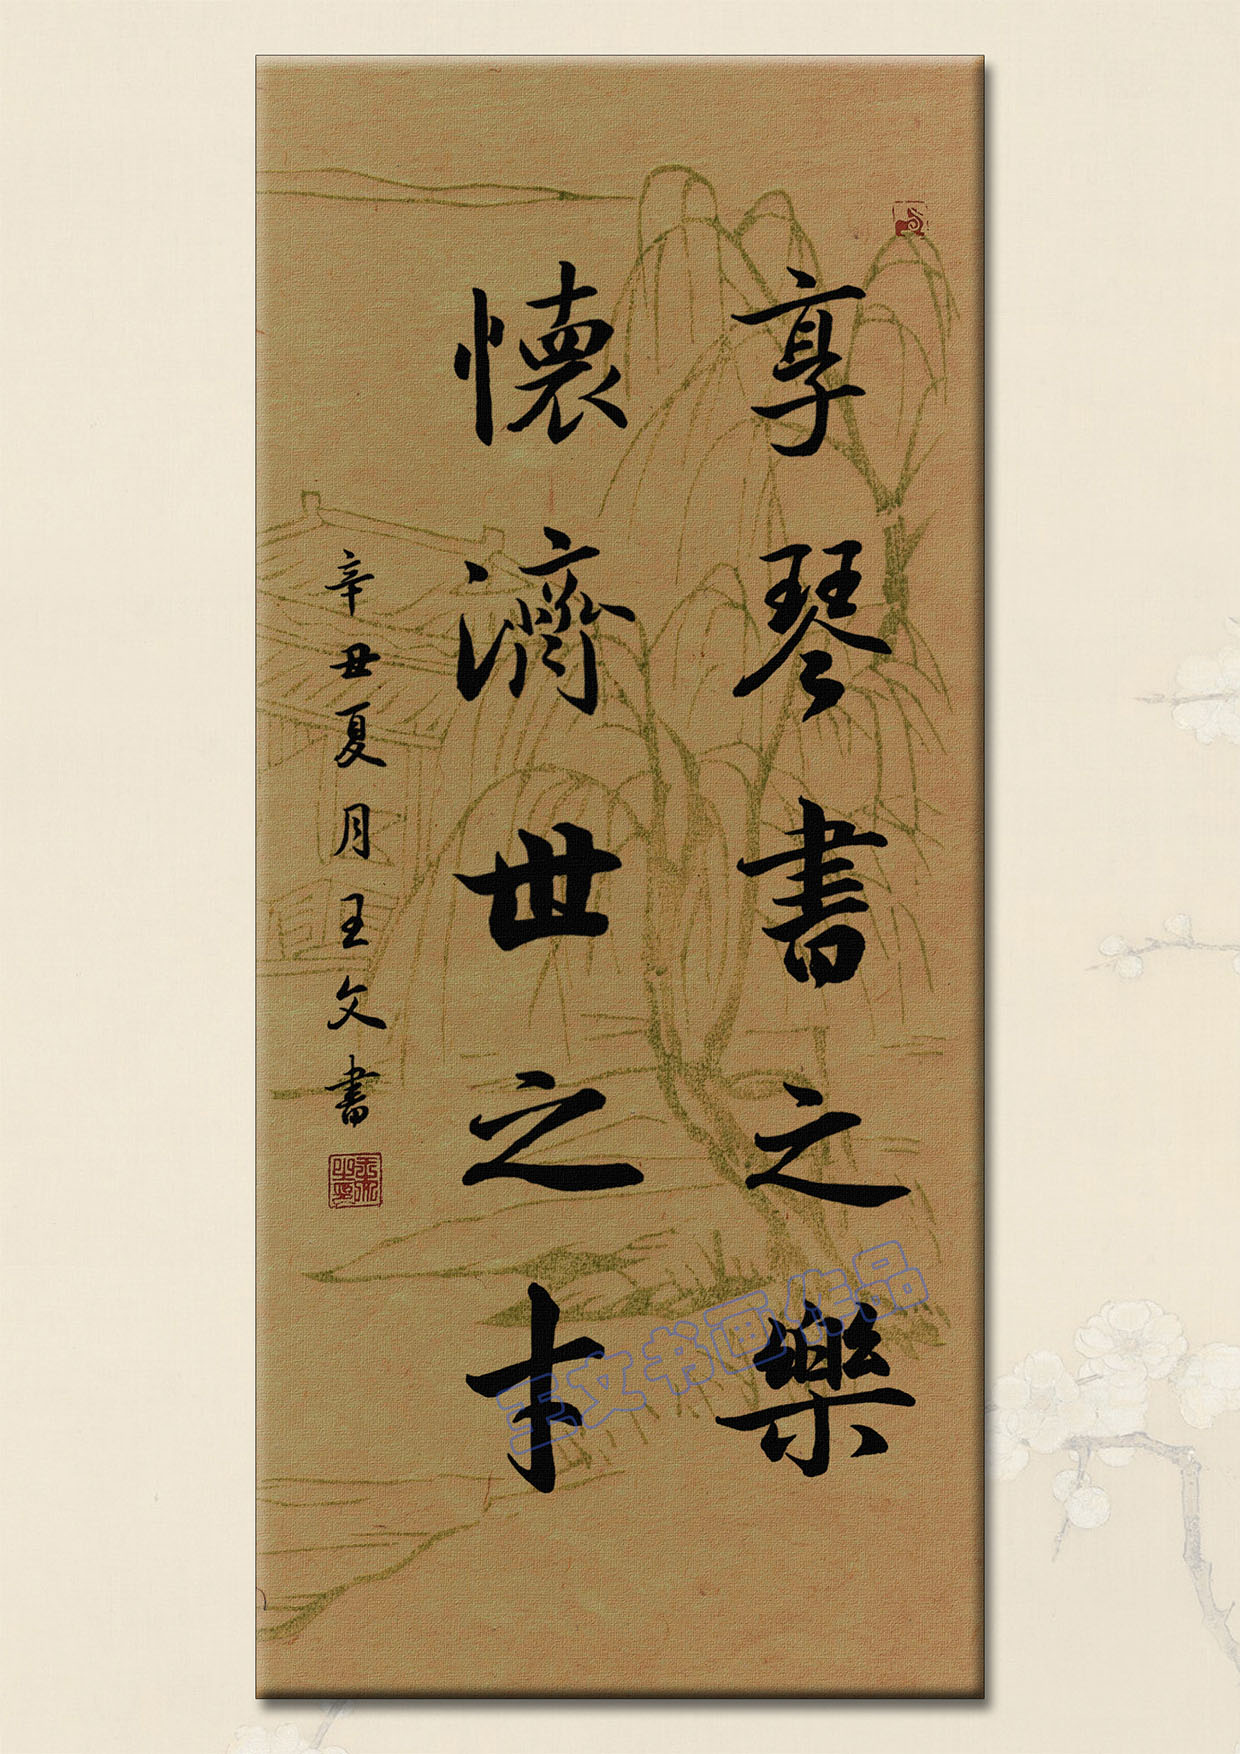 享琴書之樂
懷濟世之才
辛丑夏月王文書
王文书画作品